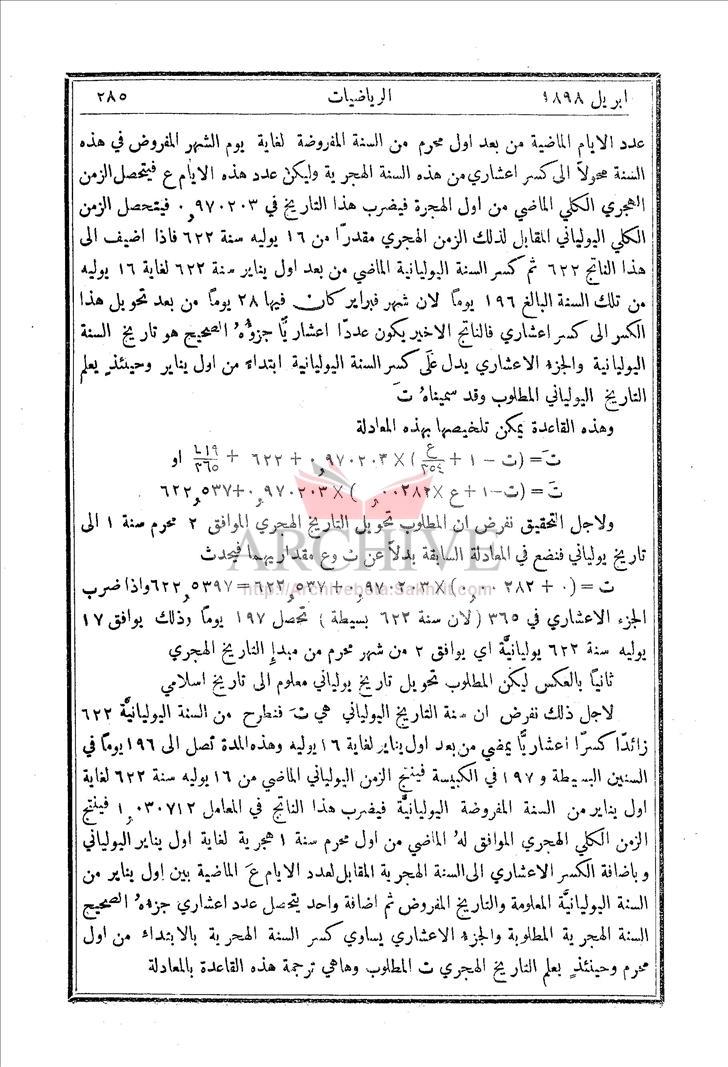 ابريل ١٨٩٨ الرياضيات ٢٨٥
عدد الايام الماضية من بعد اول محرم من السنة المفروضة لغاية يوم الشهر المفروض في هذه
السنة محولاً الى كسر اعشاري من هذه السنة الهجرية وليكن عدد هذه الايام ع فيتحصل الزمن
الهجري الكلي الماضي من اول الهجرة فيضرب هذا التاريخ في ٠٫٩٧٠٢٠٣ فيتحصل الزمن
الكلي اليولياني المقابل لذلك الزمن الهجري مقدرًا من ١٦ يوليه سنة ٦٢٢ فاذا اضيف الى
هذا الناتج ٦٢٢ ثم كسر السنة اليوليانية الماضي من بعد اول يناير سنة ٦٢٢ لغاية ١٦ يوليه
من تلك السنة البالغ ١٩٦ يومًا لان شهر فبراير كان فيها ٢٨ يومًا من بعد تحويل هذا
الكسر الى كسر اعشاري فالناتج الاخير يكون عددًا اعشاريًّا جزؤهُ الصحيح هو تاريخ السنة
اليوليانية والجزء الاعشاري يدل عَلَى كسر السنة اليوليانية ابتداءً من اول يناير وحينئذٍ يعلم
التاريخ اليولياني المطلوب وقد سميناهُ تَ
وهذه القاعدة يمكن تلخيصها بهذه المعادلة
تَ = (ت - ١ + ع/٣٥٤) × ٠٫٩٧٠٢٠٣ + ٦٢٢ + /٣٦٥ او
تَ = (ت-١+ع × ٠٫٠٠٢٨٢) × ٠٫٩٧٠٢٠٣+٦٢٢٫٥٣٧
ولاجل التحقيق نفرض ان المطلوب تحويل التاريخ الهجري الموافق ٢ محرم سنة ١ الى
تاريخ يولياني فنضع في المعادلة السابقة بدلاً عن ت وع مقداريهما فيحدث
ت = (٠ + ٠٫٠٠٢٨٢) × ٠٫٩٧٠٢٠٣ + ٦٢٢٫٥٣٧=٦٢٢٫٥٣٩٧ واذا ضرب
الجزء الاعشاري في ٣٦٥ (لان سنة ٦٢٢ بسيطة) تحصل ١٩٧ يومًا وذلك يوافق ١٧
يوليه سنة ٦٢٢ يوليانيَّة اي يوافق ٢ من شهر محرم من مبدإِ التاريخ الهجري
ثانيًا بالعكس ليكن المطلوب تحويل تاريخ يولياني معلوم الى تاريخ اسلامي
لاجل ذلك نفرض ان سنة التاريخ اليولياني هي تَ فنطرح من السنة اليوليانيَّة ٦٢٢
زائدًا كسرًا اعشاريًّا يمضي من بعد اول يناير لغاية ١٦ يوليه وهذه المدة تصل الى ١٩٦ يومًا في
السنين البسيطة و ١٩٧ في الكبيسة فينتج الزمن اليولياني الماضي من ١٦ يوليه سنة ٦٢٢ لغاية
اول يناير من السنة المفروضة اليوليانيَّة فيضرب هذا الناتج في المعامل ١٫٠٣٠٧١٢ فينتج
الزمن الكلي الهجري الموافق لهُ الماضي من اول محرم سنة ١ هجرية لغاية اول يناير اليولياني
وباضافة الكسر الاعشاري الى السنة الهجرية المقابل لعدد الايام عَ الماضية بين اول يناير من
السنة اليوليانيَّة المعلومة والتاريخ المفروض ثم اضافة واحد يتحصل عدد اعشاري جزؤهُ الصحيح
السنة الهجرية المطلوبة والجزء الاعشاري يساوي كسر السنة الهجرية بالابتداء من اول
محرم وحينئذٍ يعلم التاريخ الهجري ت المطلوب وهاهي ترجمة هذه القاعدة بالمعادلة
ARCHIVE
http://Archivebeta.Sakhrit.com